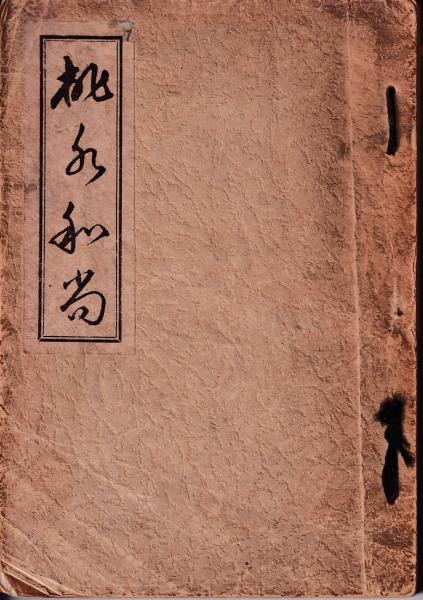 桃水和尚